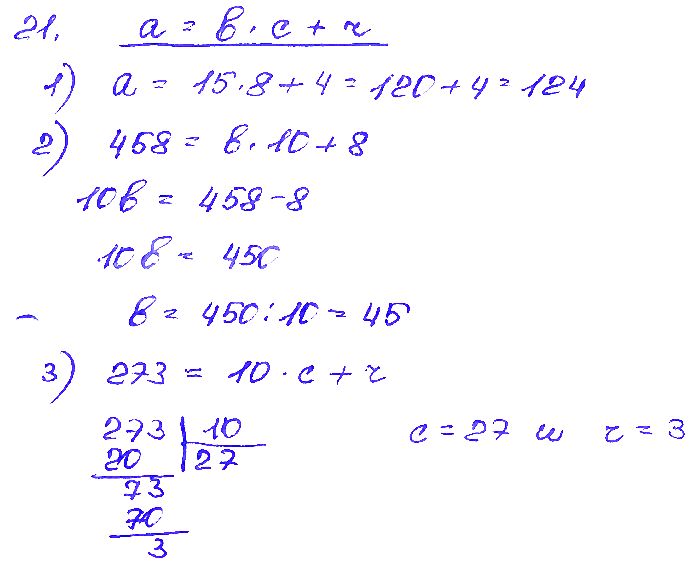 21. a = b · c + r
1) a = 15 · 8 + 4 = 120 + 4 = 124
2) 458 = b · 10 + 8
10b = 458 - 8
10b = 450
b = 450 : 10 = 45
3) 273 = 10 · c + r
273 | 10
20 | 27
73
70
3
c = 27 и r = 3